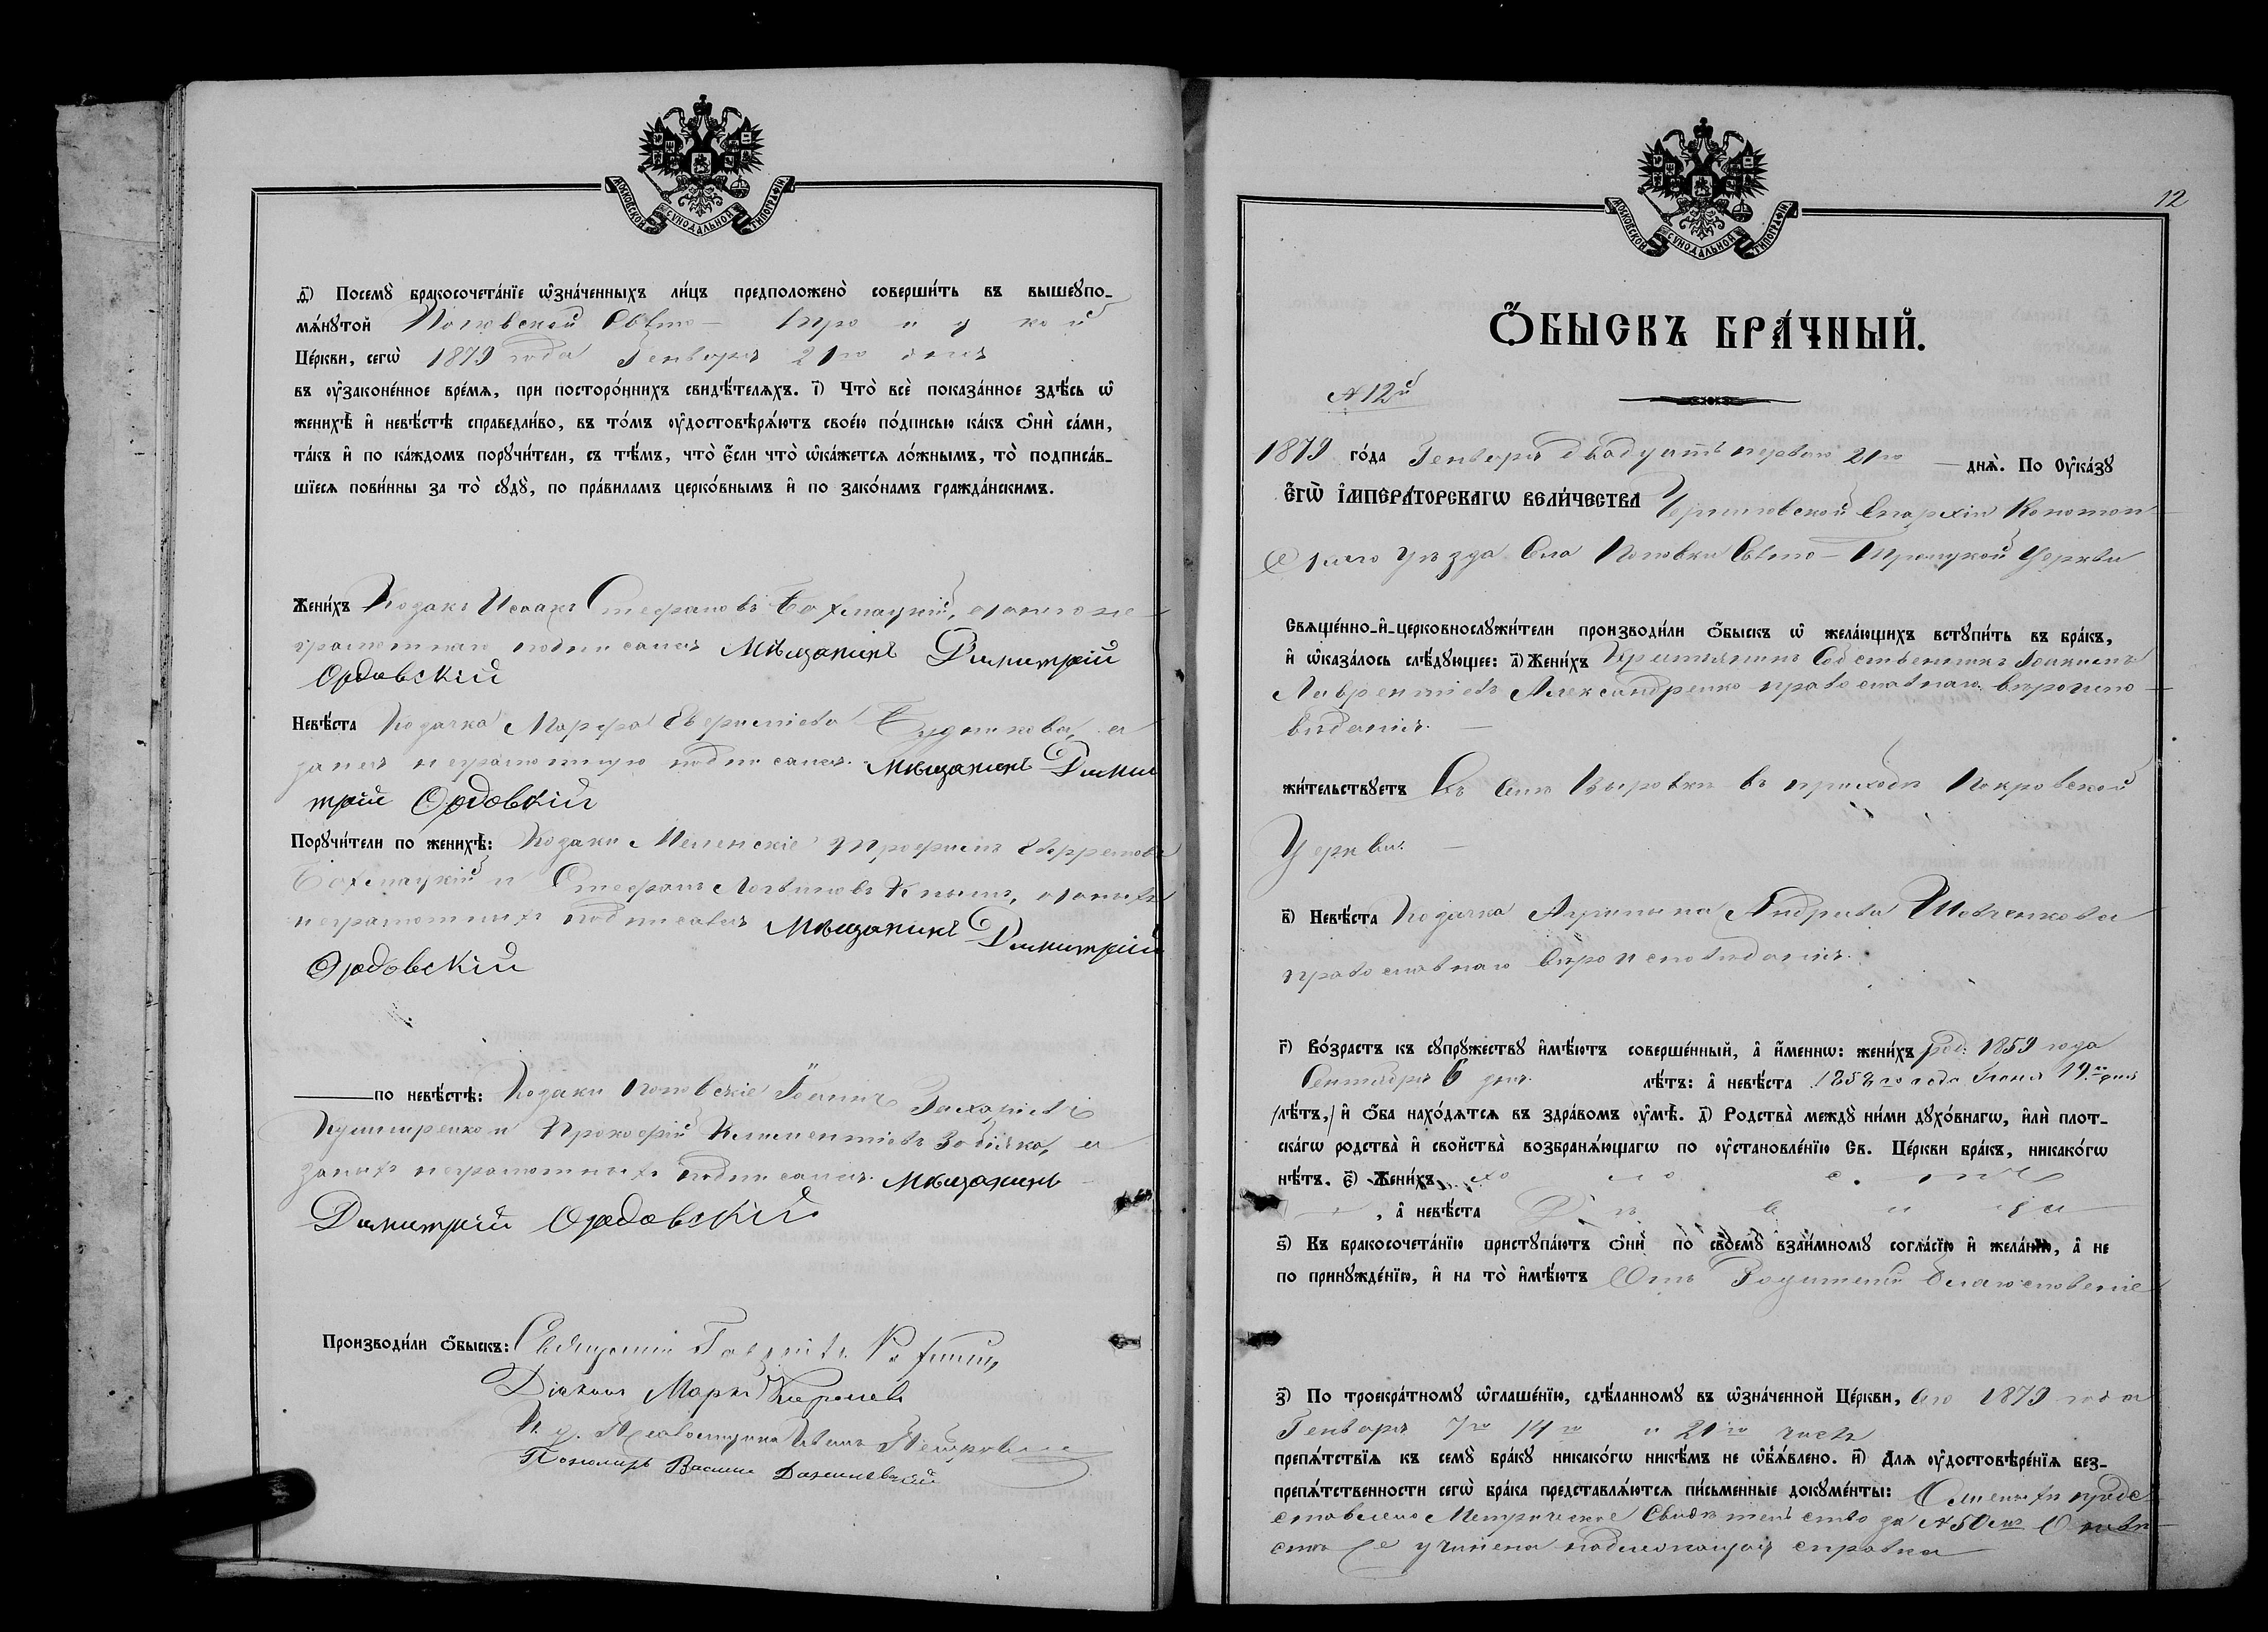 МОСКОВСКОЙ СѴНОДАЛЬНОЙ ТИПОГРАФІИ
д҃і) Посемꙋ̀ бракосочета́нїе ѡ҆зна́ченныхъ ли́цъ предположено̀ соверши́ть въ вышеꙋпо-
мѧ́нꙋтой Поповской Свѣто- Троицкой
Це́ркви, сегѡ̀ 1879 года Генваря 21го дня
въ ᲂу҆законе́нное вре́мѧ, при посторо́ннихъ свидѣ́телѧхъ. і҃) Что̀ всѐ показа́нное здѣ́сь ѡ҆
женихѣ̀ и҆ невѣ́стѣ справедли́во, въ то́мъ ᲂу҆достовѣрѧ́ютъ свое́ю по́дписью ка́къ ѻ҆нѝ са́ми,
та́къ и҆ по ка́ждомъ порꙋчи́тели, съ тѣ́мъ, что̀ є҆́сли что̀ ѡ҆ка́жетсѧ ло́жнымъ, то̀ подписа́в-
шїесѧ пови́нны за то̀ сꙋдꙋ̀, по пра́виламъ церко́внымъ и҆ по зако́намъ гражда́нскимъ.
Жени́хъ Козакъ Исаакъ Стефановъ Бахмацкій, а за него не-
грамотнаго подписался Мѣщанинъ Димитрій
Ордовскій
Невѣ́ста Козачка Марфа Будникова, а
за нея неграмотную подписался Мѣщанинъ Дими
трій Ордовскій
Порꙋчи́тели по женихѣ̀: Козаки Трофимъ
Бахмацкій и Стефанъ а за нихъ
неграмотныхъ подписался Мѣщанинъ Димитрій
Ордовскій
по невѣ́стѣ: Козаки Поповскіе Іоаннъ Захаріевъ
Кушниренко и Прокофій Климентіевъ а
за нихъ неграмотныхъ подписался Мѣщанинъ
Димитрій Ордовскій
Производи́ли ѻ҆́быскъ: Священникъ
Діаконъ Маркъ
И. д. Псаломщика Иванъ
Пономарь Василій
МОСКОВСКОЙ СѴНОДАЛЬНОЙ ТИПОГРАФІИ
12
Ѻ҆́БЫСКЪ БРА́ЧНЫЙ.
N 12й
1879 го́да Генваря двадцать перваго 21го днѧ̀. По Оу҆ка́зꙋ
Є҆ГѠ̀ І҆МПЕРА́ТОРСКАГѠ ВЕЛИ́ЧЕСТВА Черниговской Епархіи Конотоп-
скаго Уѣзда Села Поповки Свѣто-Троицкой Церкви
Свѧще́нно-и҆-церковнослꙋжи́тели производи́ли ѻ҆́быскъ ѡ҆ жела́ющихъ встꙋпи́ть въ бра́къ,
и҆ ѡ҆каза́лось слѣ́дꙋющее: а҃) Жени́хъ Крестьянинъ Собственникъ Іоакимъ
Лаврентіевъ Александренко православнаго вѣроиспо-
вѣданія.
жи́тельствꙋетъ Въ Селѣ Выровкѣ въ приходѣ Покровской
Церкви.
в҃) Невѣ́ста Козачка Агрипина Андреева Шевченкова
православнаго вѣроисповѣданія.
г҃) Во́зрастъ къ сꙋпрꙋ́жествꙋ и҆мѣ́ютъ соверше́нный, а҆ и҆́меннѡ: жени́хъ род: 1859 года
Сентября 6 дня. лѣ́тъ: а҆ невѣ́ста 1858го года Іюня 19го дня
/лѣ́тъ,/ и҆ ѻ҆́ба нахо́дѧтсѧ въ здра́вомъ ᲂу҆мѣ̀. д҃) Родства̀ междꙋ̀ ни́ми дꙋхо́внагѡ, и҆лѝ плот-
ска́гѡ родства̀ и҆ свойства̀ возбранѧ́ющагѡ по ᲂу҆становле́нїю Св. Це́ркви бра́къ, никако́гѡ
нѣ́тъ. є҃) Жени́хъ холостъ
, а҆ невѣ́ста Дѣвица
ѕ҃) Къ бракосочета́нїю пристꙋпа́ютъ ѻ҆нѝ по своемꙋ̀ взаи́мномꙋ согла́сїю и҆ жела́нїю, а҆ не
по принꙋжде́нїю, и҆ на то̀ и҆мѣ́ютъ Отъ Родителей благословеніе
з҃) По троекра́тномꙋ ѡ҆глаше́нїю, сдѣ́ланномꙋ въ ѡ҆зна́ченной Це́ркви, Сего 1879 года
Генваря 7го 14го и 21го числъ
препѧ́тствїѧ къ семꙋ̀ бра́кꙋ никако́гѡ никѣ́мъ не ѡ҆б̾ѧ́влено. и҃) Длѧ ᲂу҆достовѣре́нїѧ без-
препѧ́тственности сегѡ̀ бра́ка представлѧ́ютсѧ пи́сьменные докꙋме́нты: О женихѣ пред-
ставлено Метрическое Свидѣтельство за N 50мъ О невѣ-
стѣ же учинена надлежащая справка